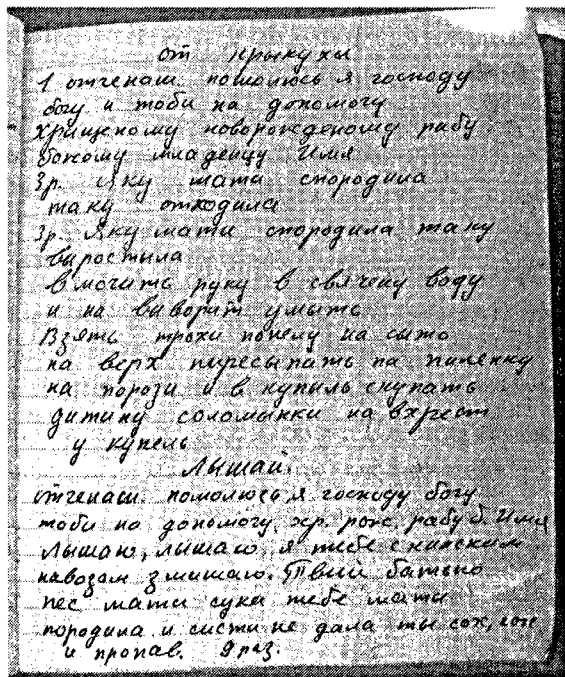 от крыкухы
1 отченаш помолюсь я господу
богу и тоби на допомогу
хрищеному новорожденому рабу
божому младенцу Имя
3р. Яку мати спородила
таку отходила
3р. Яку мати спородила таку
виростыла
вмочить руку в свячену воду
и на виворит умыть
Взять трохи попелу на сыто
на верх пересыпать на пиленку
на порози и в купыль скупать
дитину соломынки на вхрест
у купель
Лышай.
отченаш. помолюсь я господу богу
тоби на допомогу хр. рож. рабу б. Имя
Лышаю, лышаю, я тебе с кинским
навозам змишаю. Твий батько
пес мати сука тебе мати
породила и систи не дала ты сох, сох
и пропав. 9 раз.